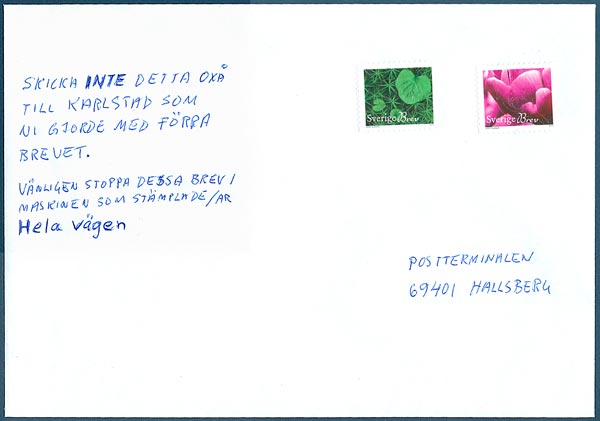 SKICKA INTE DETTA OXÅ
TILL KARLSTAD SOM
NI GJORDE MED FÖRRA
BREVET.
VÄNLIGEN STOPPA DESSA BREV I
MASKINEN SOM STÄMPLADE/AR
Hela vägen
Sverige Brev
Sverige Brev
POSTTERMINALEN
69401 HALLSBERG